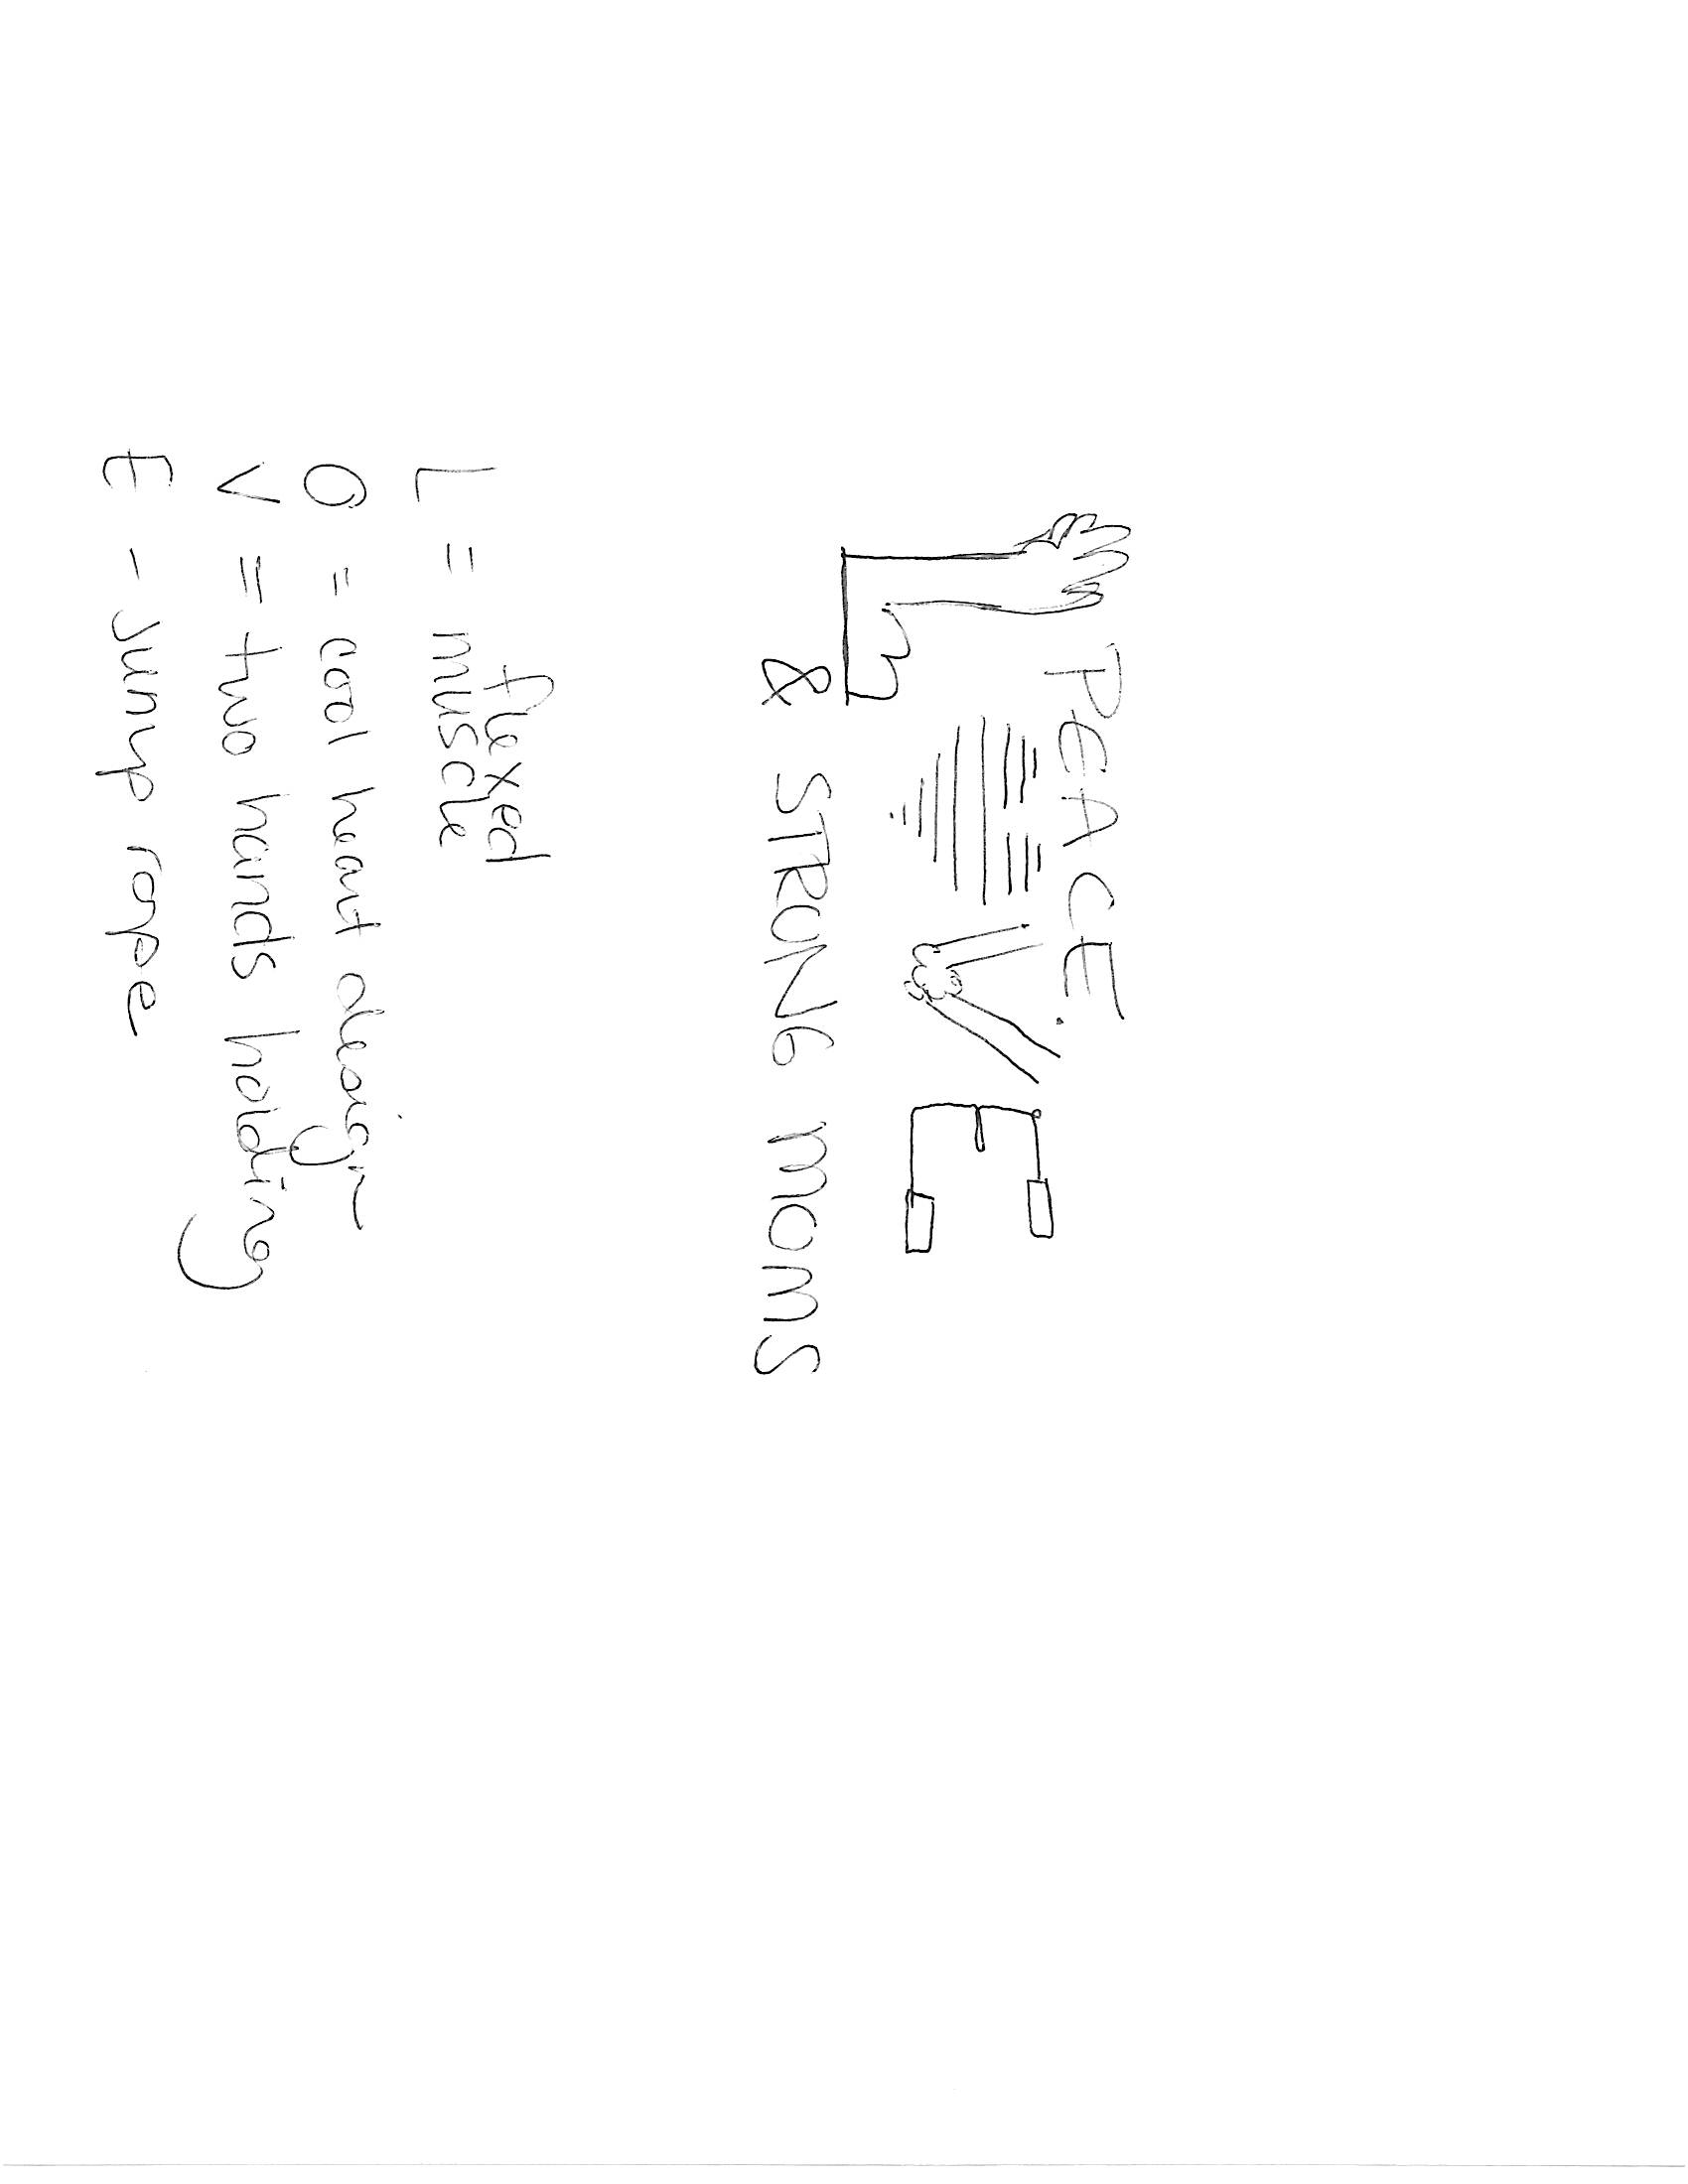 PEACE.
LOVE
& STRONG moms
L = flexed muscle
O = cool heart design
V = two hands holding
E - Jump rope